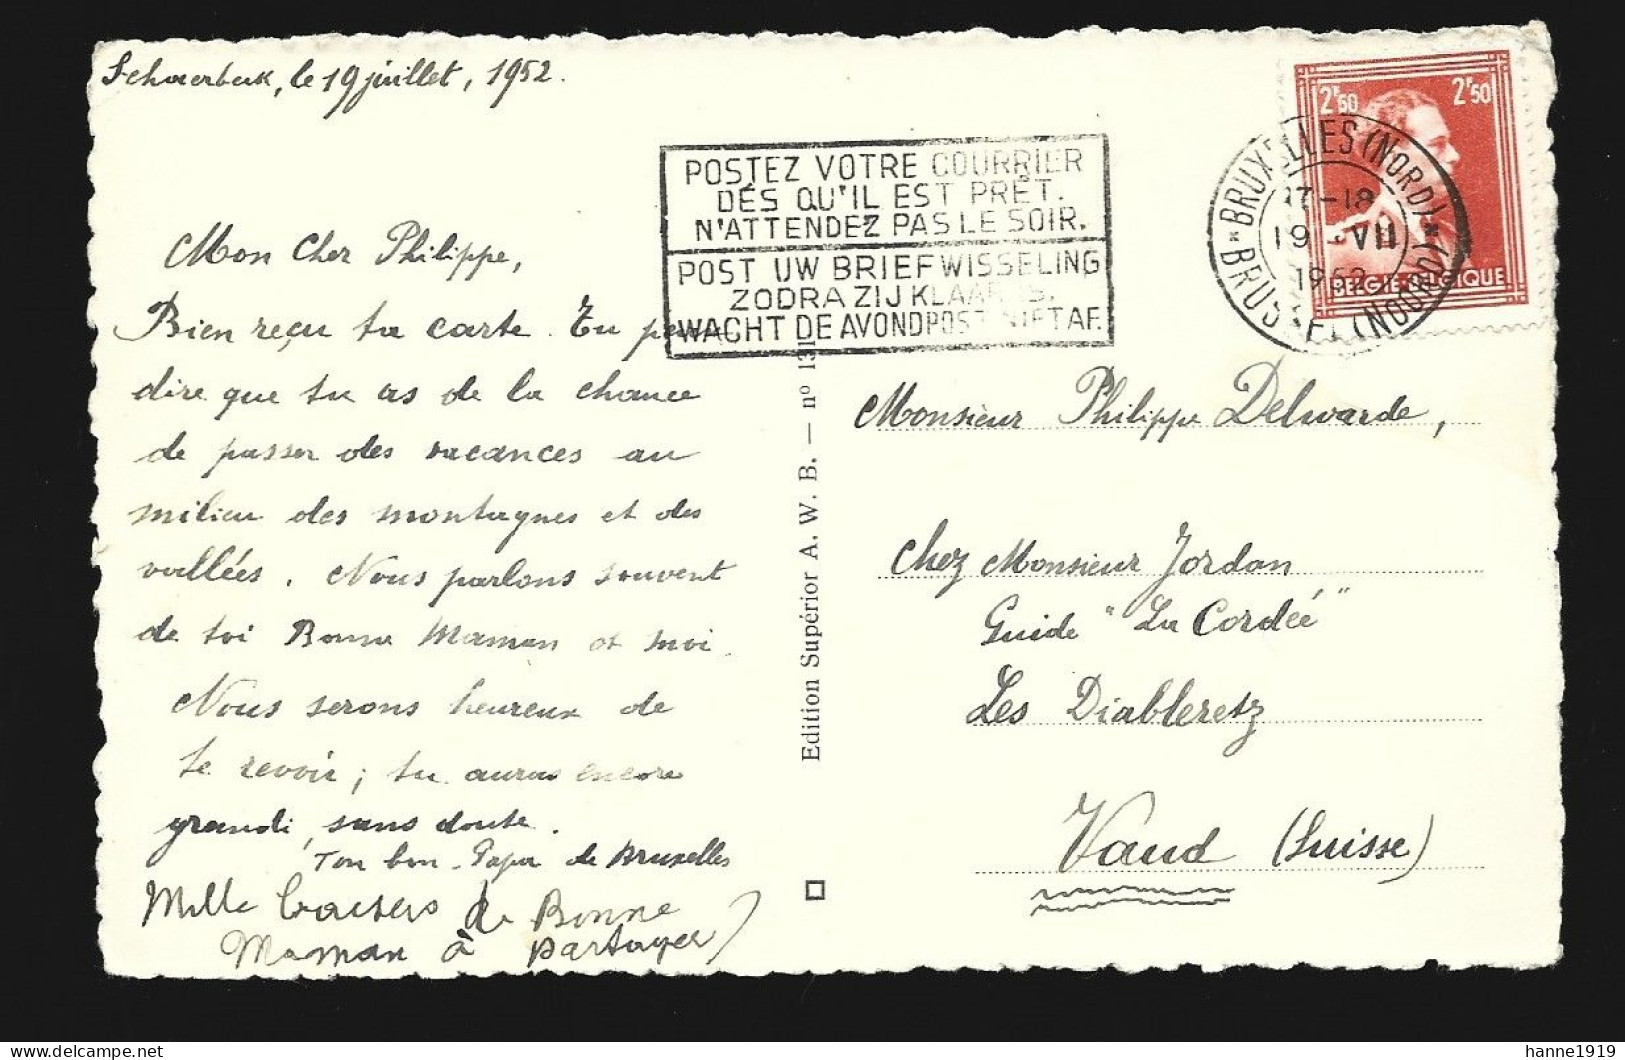 Schaerbeek, le 19 juillet, 1952.
Mon Cher Philippe,
Bien reçu ta carte. Tu peux
dire que tu as de la chance
de passer des vacances au
milieu des montagnes et des
vallées. Nous parlons souvent
de toi Bonne Maman et moi.
Nous serons heureux de
te revoir; tu auras encore
grandi, sans doute.
Ton bon-Papa de Bruxelles
Mille baisers de Bonne
Maman à partager
POSTEZ VOTRE COURRIER
DÈS QU'IL EST PRÊT.
N'ATTENDEZ PAS LE SOIR.
POST UW BRIEFWISSELING
ZODRA ZIJ KLAAR IS.
WACHT DE AVONDPOST NIET AF.
2F50 2F50
BELGIE-BELGIQUE
*BRUXELLES (NORD)*
17-18
19 -VII
1952
BRUSSEL (NOORD)
Edition Supérior A. W. B. — nº 131
Monsieur Philippe Delwarde,
Chez Monsieur Jordan
Guide "La Cordée"
Les Diableretz
Vaud (Suisse)
hanne1919